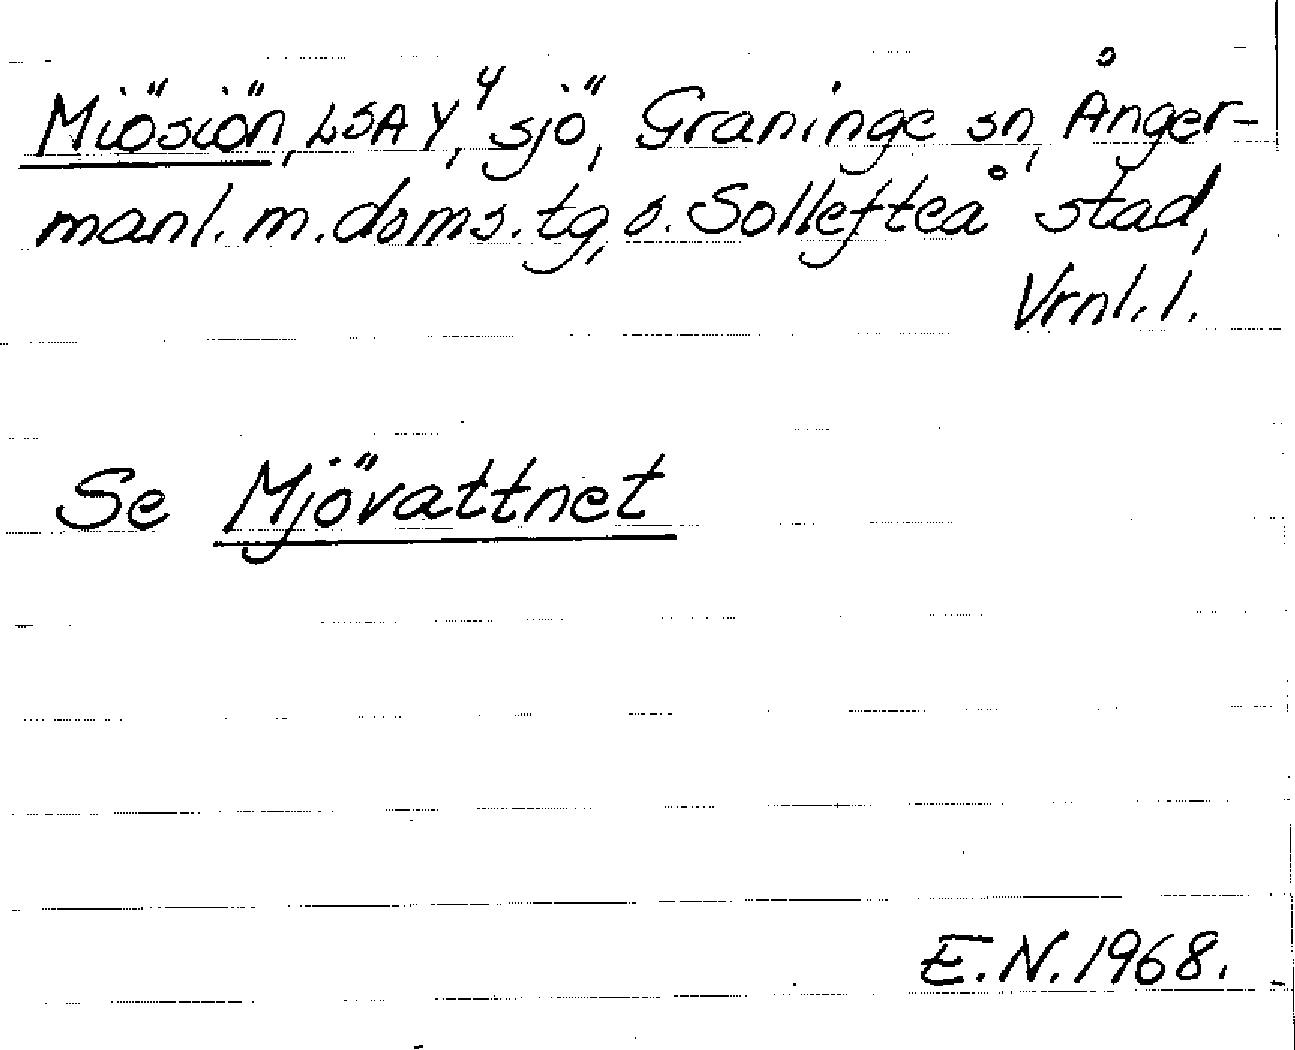 Miösiön, LSA Y⁴, sjö, Graninge sn, Ånger-
manl. m. doms. tg, o. Sollefteå stad,
Vrnl. l.
Se Mjövattnet
E.N. 1968.